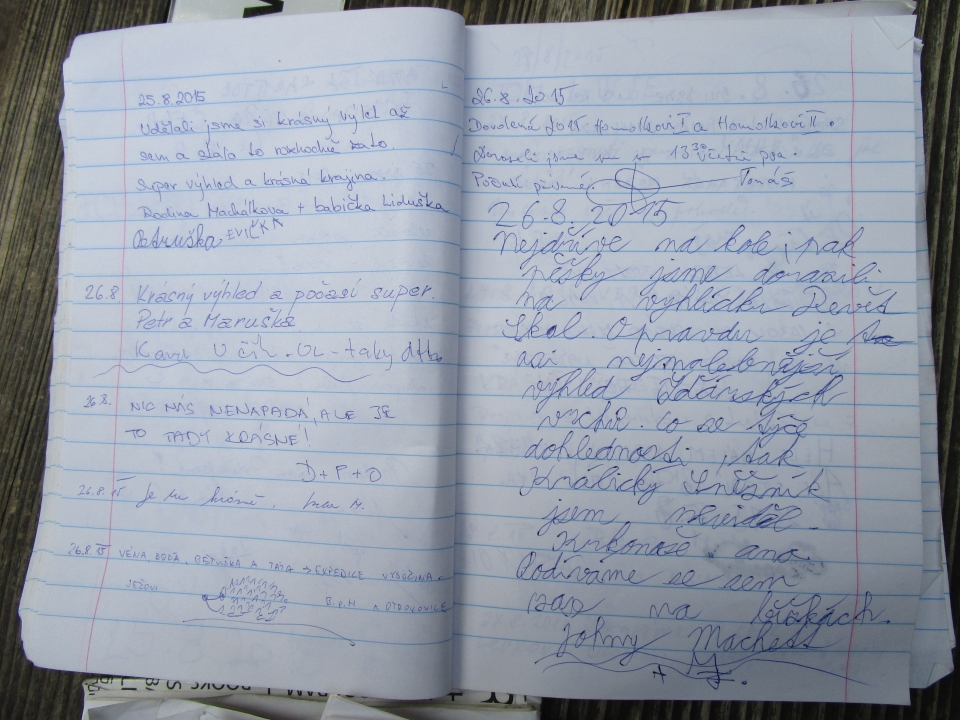 25.8.2015
Udělali jsme si krásný výlet až
sem a stálo to rozhodně zato.
Super výhled a krásná krajina.
Rodina Machálkova + babička Liduška
Petruška EVIČKA
26.8 Krásný výhled a počasí super.
Petr a Maruška
Karel
UL - taky
26.8. NIC NÁS NENAPADÁ, ALE JE
TO TADY KRÁSNÉ!
D+P+O
26.8.15 Je tu krásně. M.
26.8.15 VĚNA, PETRUŠKA A TÁTA → EXPEDICE VYSOČINA.
JEŽOVI
26.8.2015
Dovolená 2015 Homolkovi I a Homolkovi II.
jsme 13 30 včetně psa.
Počasí Tomáš
26.8.2015
Nejdříve na kole, pak
pěšky jsme dorazili
na vyhlídku Devět
Skal. Opravdu je
asi nejmalebnější
výhled Žďárských
vrchů. co se týče
dohlednosti, tak
Králický Sněžník
jsem neviděl.
Krkonoše ano.
Podíváme se sem
zase na běžkách.
Johny